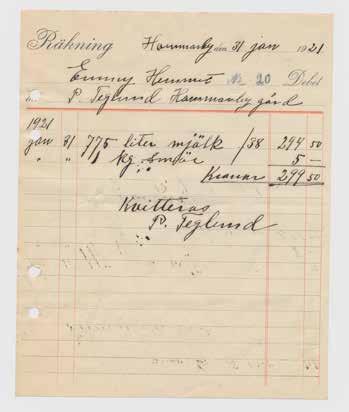 Räkning Hammarby den 31 jan 1921
Emmy Hemmet No 20 Debet
till P. Teglund Hammarby gård
1921
jan 31 775 liter mjölk /38 294 50
" " 1 kg smör 5 —
Kronor 299 50
Kvitteras
P. Teglund